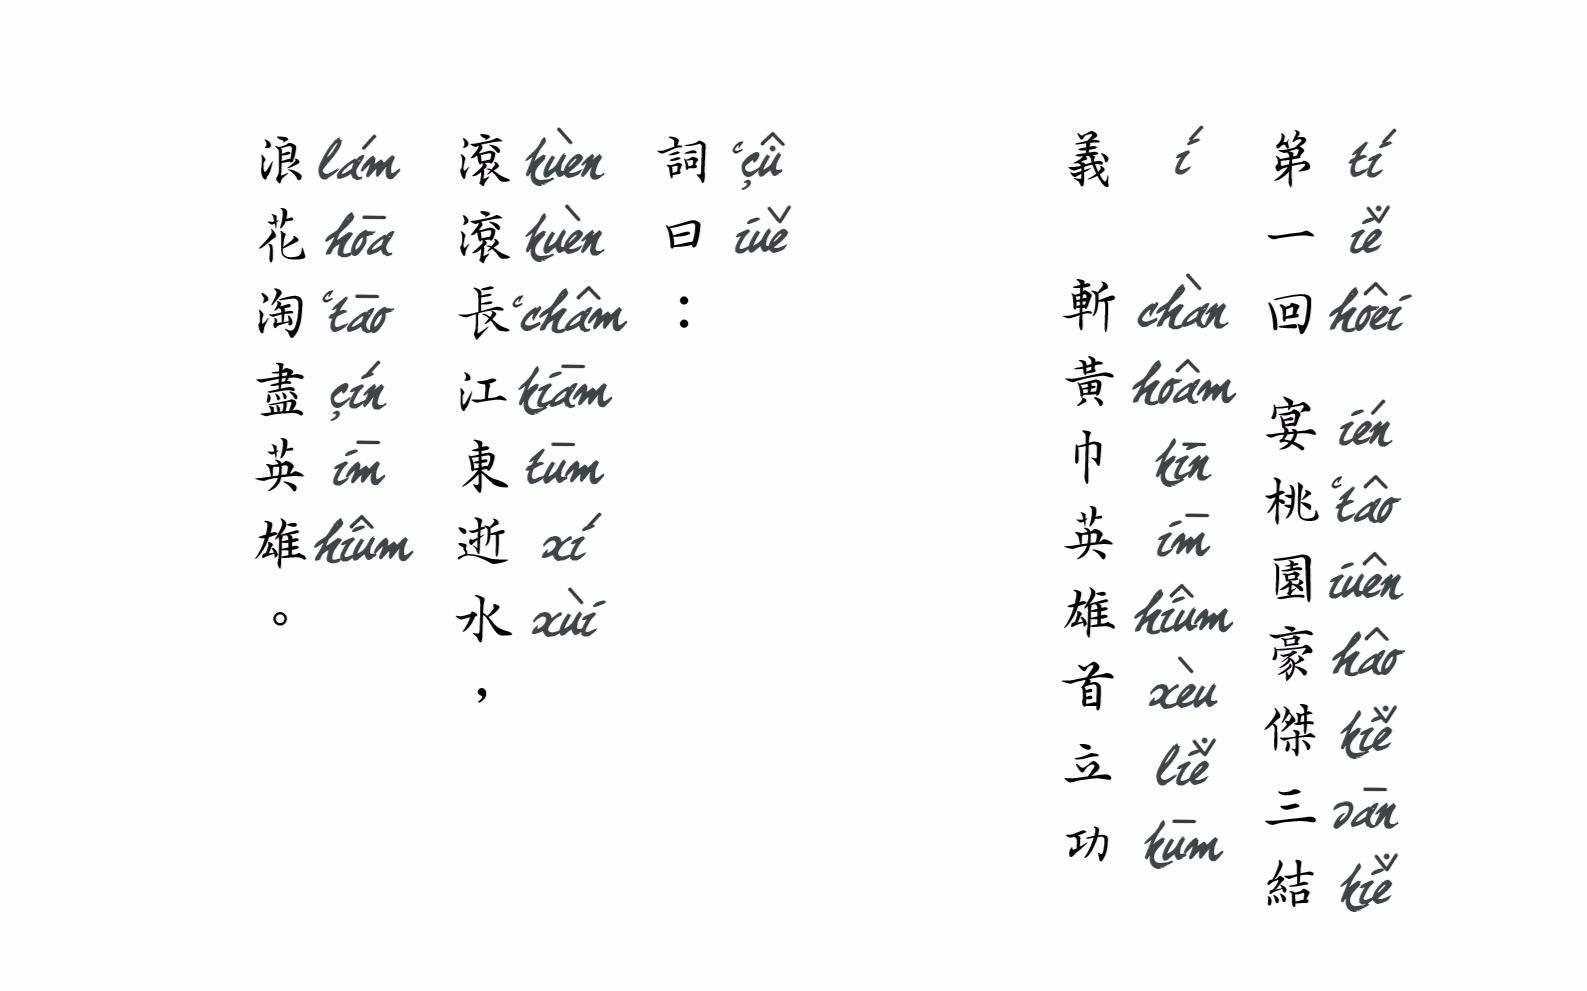 第一回 宴桃園豪傑三結
tí iĕ̇ hôei ién ʿtâo iuên hâo kiĕ̇ sān kiĕ̇
義 斬黃巾英雄首立功
í chàn hoâm kīn īm hiûm xèu liĕ̇ kūm
詞曰：
ʿçû̇ iuĕ
滾滾長江東逝水，
kuèn kuèn ʿchâm kiām tūm xí xùi
浪花淘盡英雄。
lám hōa ʿtāo çín īm hiûm